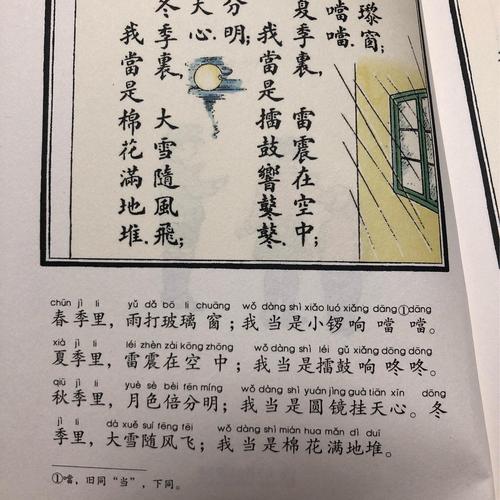 瓈窗;
噹噹.
夏季裏, 雷震在空中;
我當是擂鼓響鼕鼕.
分明;
天心.
冬季裏, 大雪隨風飛;
我當是棉花滿地堆.
chūn jì lǐ yǔ dǎ bō li chuāng wǒ dàng shì xiǎo luó xiǎng dāng①dāng
春季里，雨打玻璃窗；我当是小锣响噹噹。
xià jì lǐ léi zhèn zài kōng zhōng wǒ dàng shì léi gǔ xiǎng dōng dōng
夏季里，雷震在空中；我当是擂鼓响咚咚。
qiū jì lǐ yuè sè bèi fēn míng wǒ dàng shì yuán jìng guà tiān xīn dōng
秋季里，月色倍分明；我当是圆镜挂天心。冬
jì lǐ dà xuě suí fēng fēi wǒ dàng shì mián hua mǎn dì duī
季里，大雪随风飞；我当是棉花满地堆。
①噹，旧同“当”，下同。